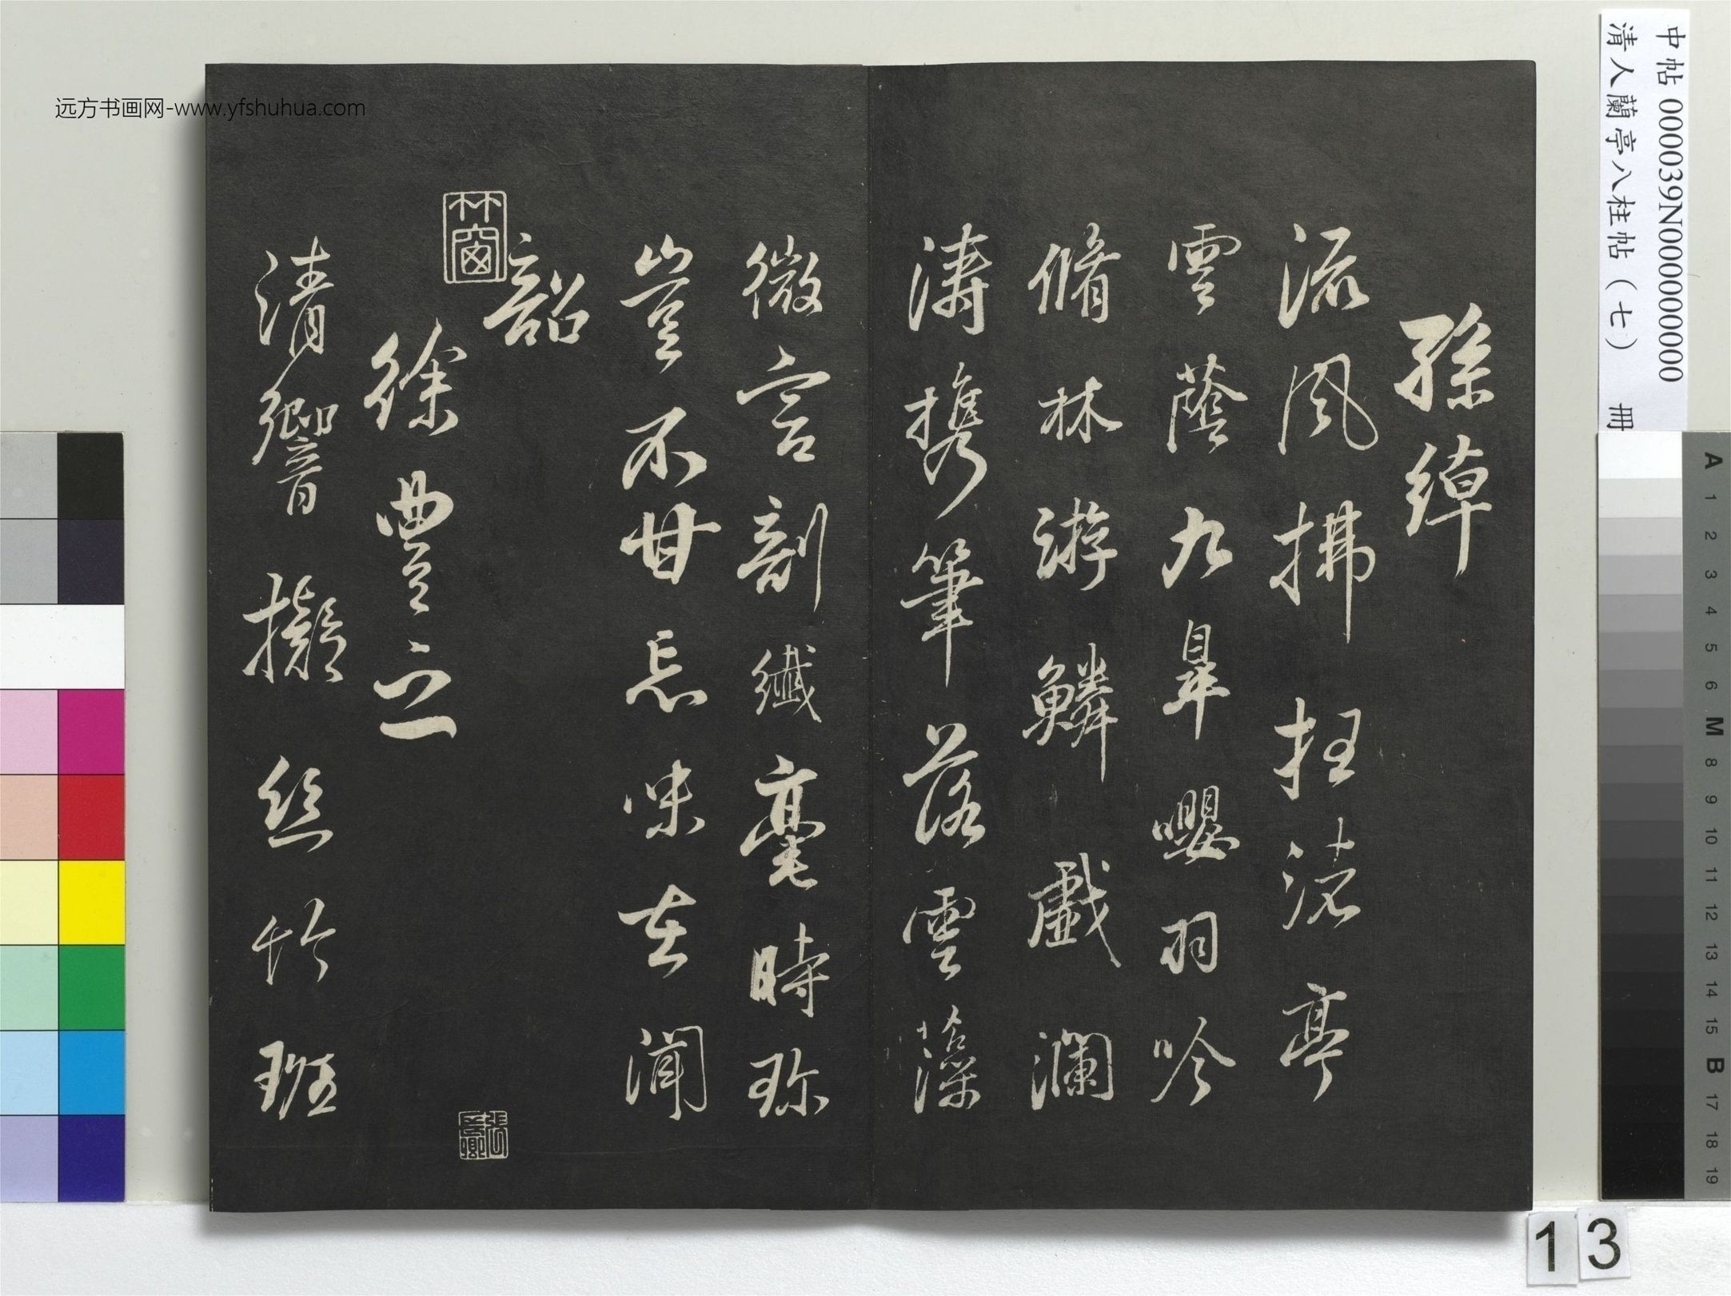 远方书画网-www.yfshuhua.com
中帖 000039N000000000
清人蘭亭八柱帖(七) 冊
孫綽
流風拂枉渚亭
雲蔭九皐嚶羽吟
脩林游鱗戲瀾
濤携筆落雲藻
微言剖纖毫時珍
豈不甘忘味在聞
韶
徐豐之
清響擬絲竹班
A 1 2 3 4 5 6 M 8 9 10 11 12 13 14 15 B 17 18 19
13